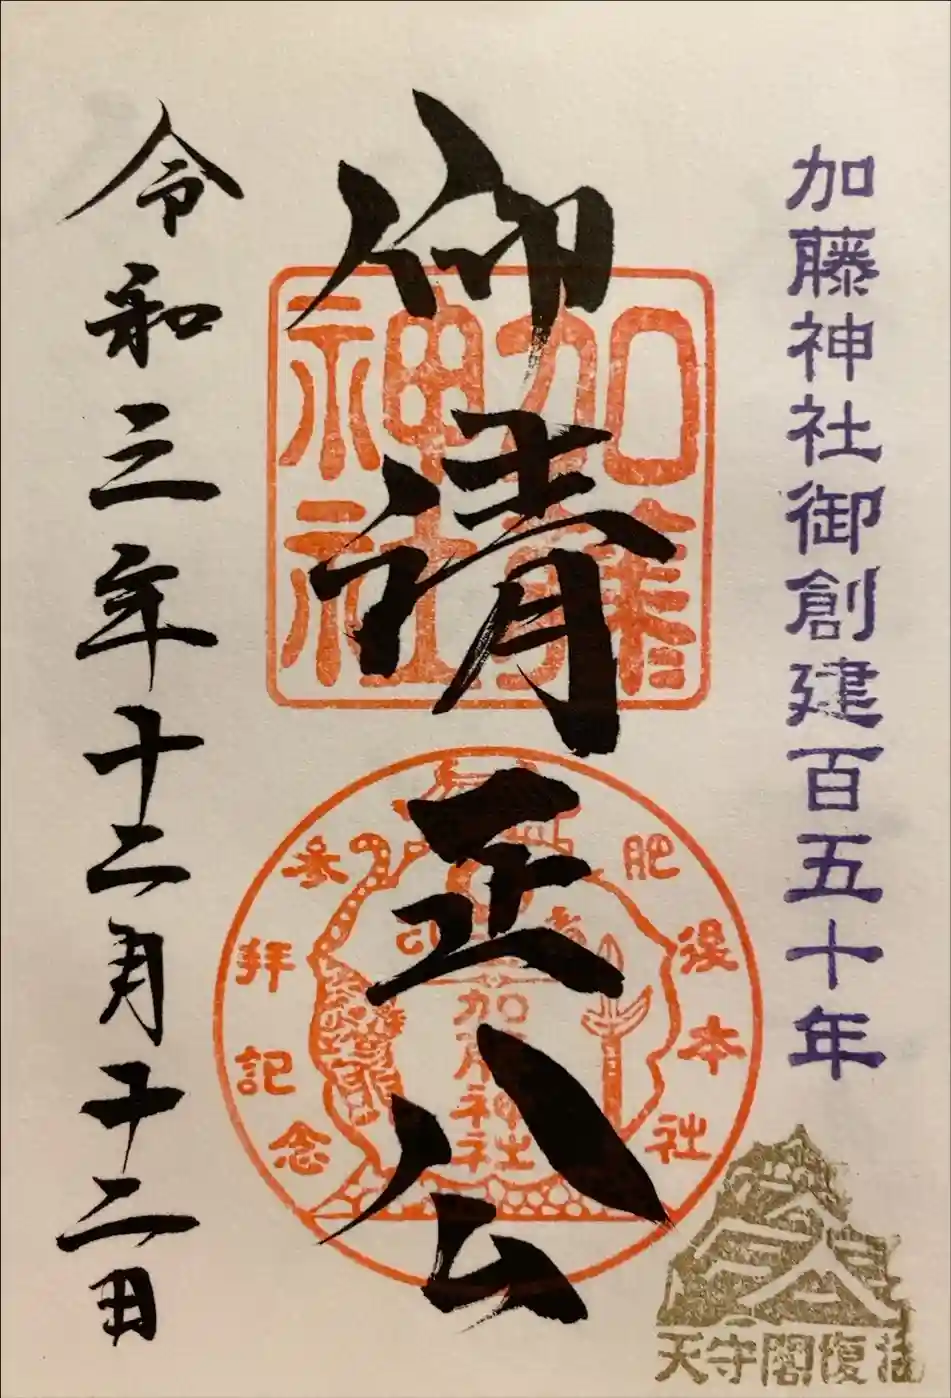 加藤神社御創建百五十年
仰清正公
加藤神社
肥後本社
参拝記念
加藤神社
天守閣復
令和三年十二月十二日